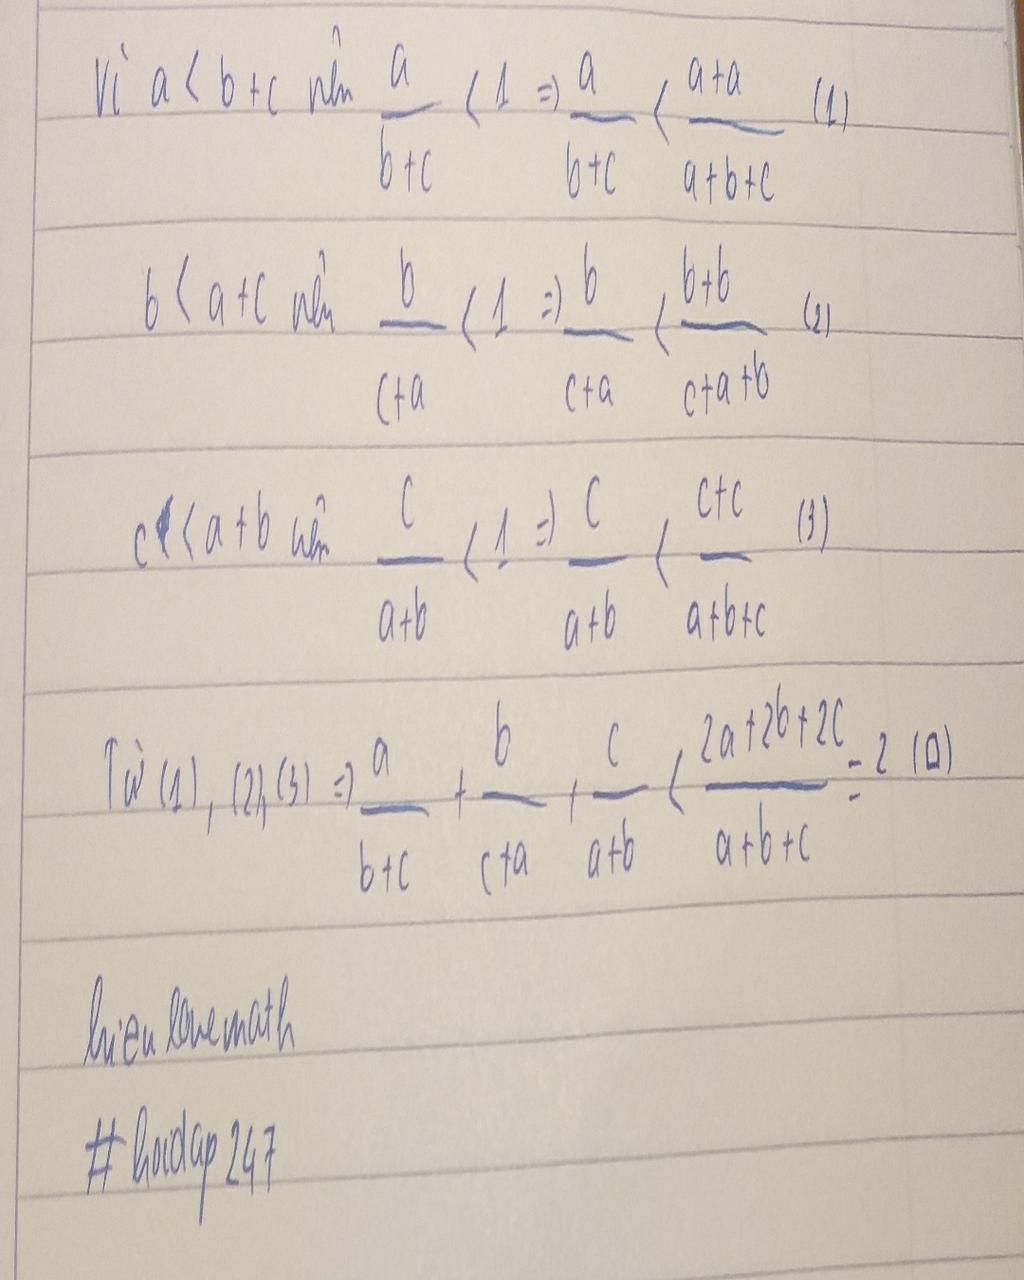 Vì a < b+c nên a/(b+c) < 1 => a/(b+c) < (a+a)/(a+b+c) (1)
b < a+c nên b/(c+a) < 1 => b/(c+a) < (b+b)/(c+a+b) (2)
c < a+b nên c/(a+b) < 1 => c/(a+b) < (c+c)/(a+b+c) (3)
Từ (1), (2), (3) => a/(b+c) + b/(c+a) + c/(a+b) < (2a+2b+2c)/(a+b+c) = 2 (□)
hieulovemath
#hoidap247